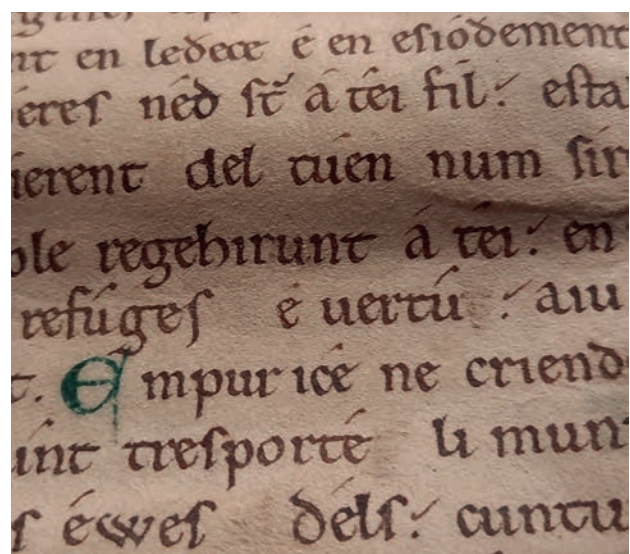 nt en ledece é en esióđement
ieres néđ sť á téi fil: esta
ierent del tuen num sir
ple regehirunt á téi: en
refúges é uertú : aiu
t. Empur icé ne criend
úint tresporté li munt
s éwes déls: cuntu